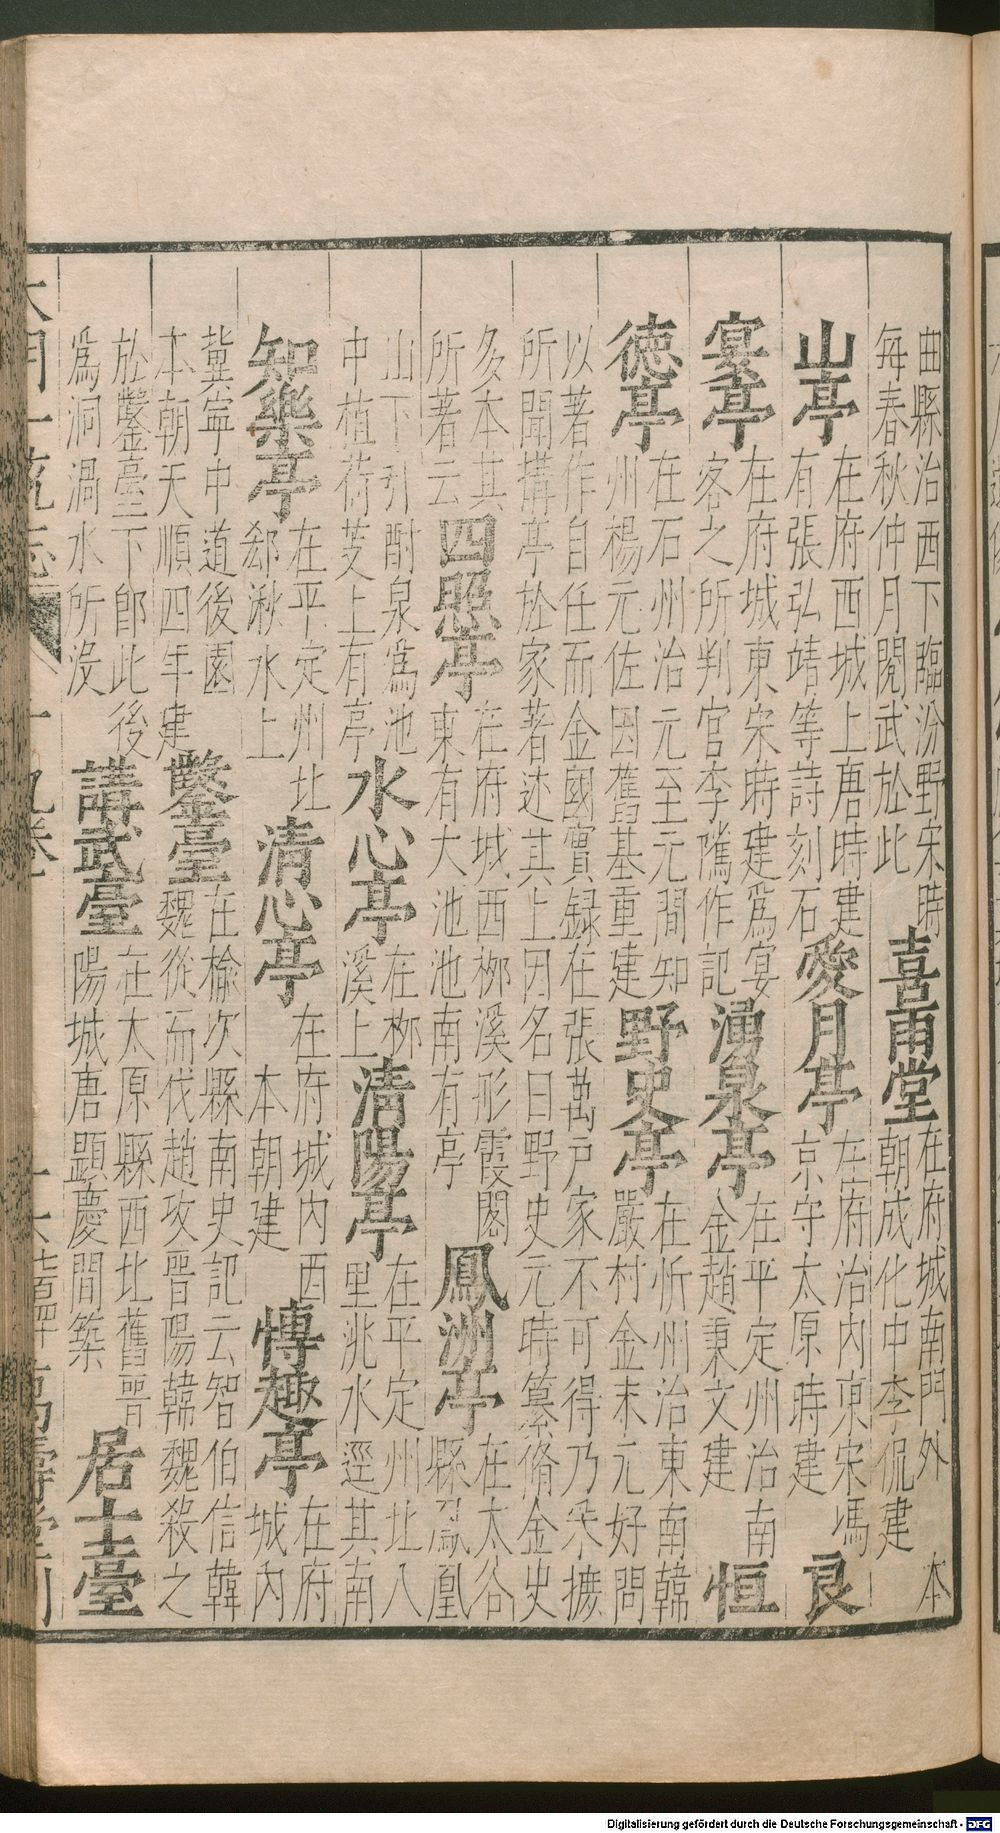 曲縣治西下臨汾野宋時
每春秋仲月閱武於此
喜雨堂
在府城南門外　本
朝成化中李侃建
良
山亭
在府西城上唐時建
有張弘靖等詩刻石
愛月亭
在府治內東宋馮
京守太原時建
恒
宴亭
在府城東宋時建爲宴
客之所判官李儁作記
湧泉亭
在平定州治南
金趙秉文建
德亭
在石州治元至元間知
州楊元佐因舊基重建
野史亭
在忻州治東南韓
嚴村金末元好問
以著作自任而金國實録在張萬戶家不可得乃采摭
所聞搆亭於家著述其上因名曰野史元時纂脩金史
多本其
所著云
四照亭
在府城西栁溪形霞閣
東有大池池南有亭
鳳洲亭
在太谷
縣鳳凰
山下引酎泉爲池
中植荷芰上有亭
水心亭
在栁
溪上
清陽亭
在平定州北八
里洮水逕其南
知樂亭
在平定州北
郄湫水上
清心亭
在府城內西
本朝建
慱趣亭
在府
城內
冀寧中道後園
本朝天順四年建
鑿臺
在榆次縣南史記云智伯信韓
魏從而伐趙攻晉陽韓魏殺之
於鑿臺下卽此後
爲洞渦水所沒
講武臺
在太原縣西北舊晉
陽城唐顯慶間築
居士臺
大明一統志 十九卷 十六 萬壽堂刊
Digitalisierung gefördert durch die Deutsche Forschungsgemeinschaft - DFG